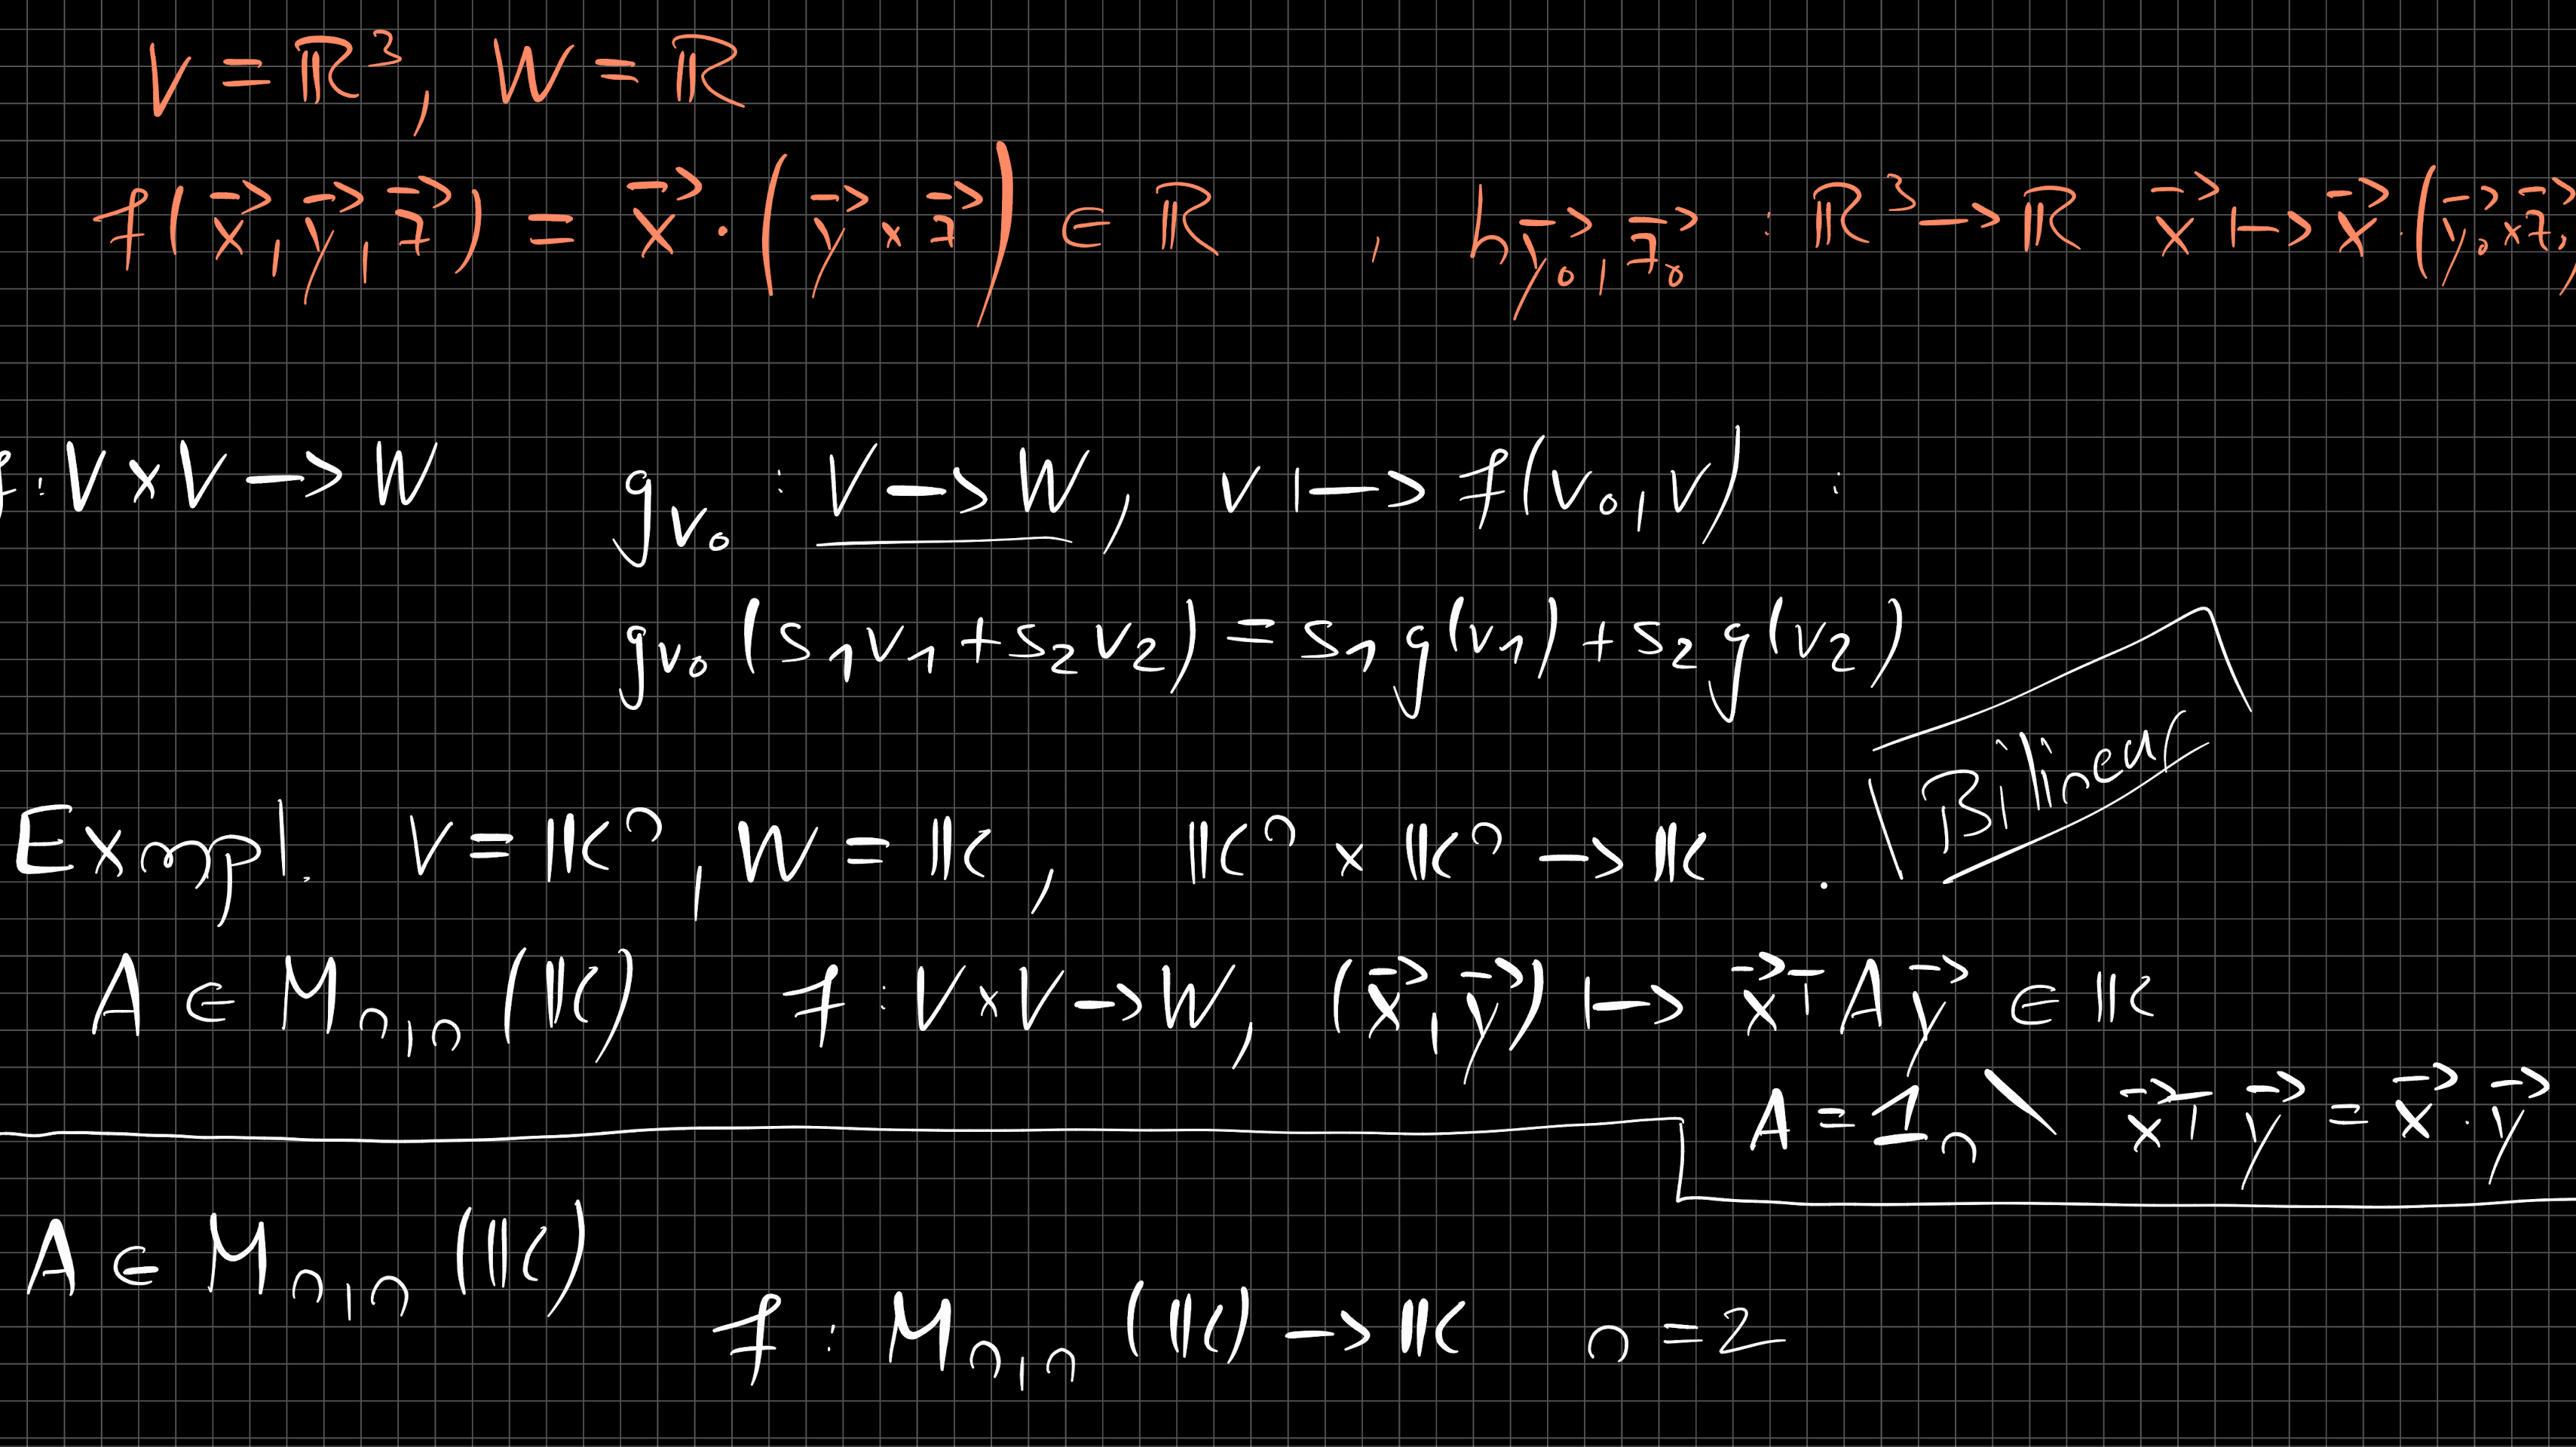 V = ℝ³, W = ℝ
f(x⃗, y⃗, z⃗) = x⃗ · (y⃗ × z⃗) ∈ ℝ , h_{y⃗₀, z⃗₀} : ℝ³ → ℝ x⃗ ↦ x⃗ · (y⃗₀ × z⃗₀
f : V × V → W g_{v₀} : V → W, v ↦ f(v₀, v) :
g_{v₀}(s₁v₁ + s₂v₂) = s₁g(v₁) + s₂g(v₂)
Bilinear
Exmpl. V = 𝕂ⁿ, W = 𝕂, 𝕂ⁿ × 𝕂ⁿ → 𝕂 .
A ∈ M_{n,n}(𝕂) f : V × V → W, (x⃗, y⃗) ↦ x⃗ᵀ A y⃗ ∈ 𝕂
A = 1ₙ \ x⃗ᵀ y⃗ = x⃗ · y⃗
A ∈ M_{n,n}(𝕂)
f : M_{n,n}(𝕂) → 𝕂 n = 2